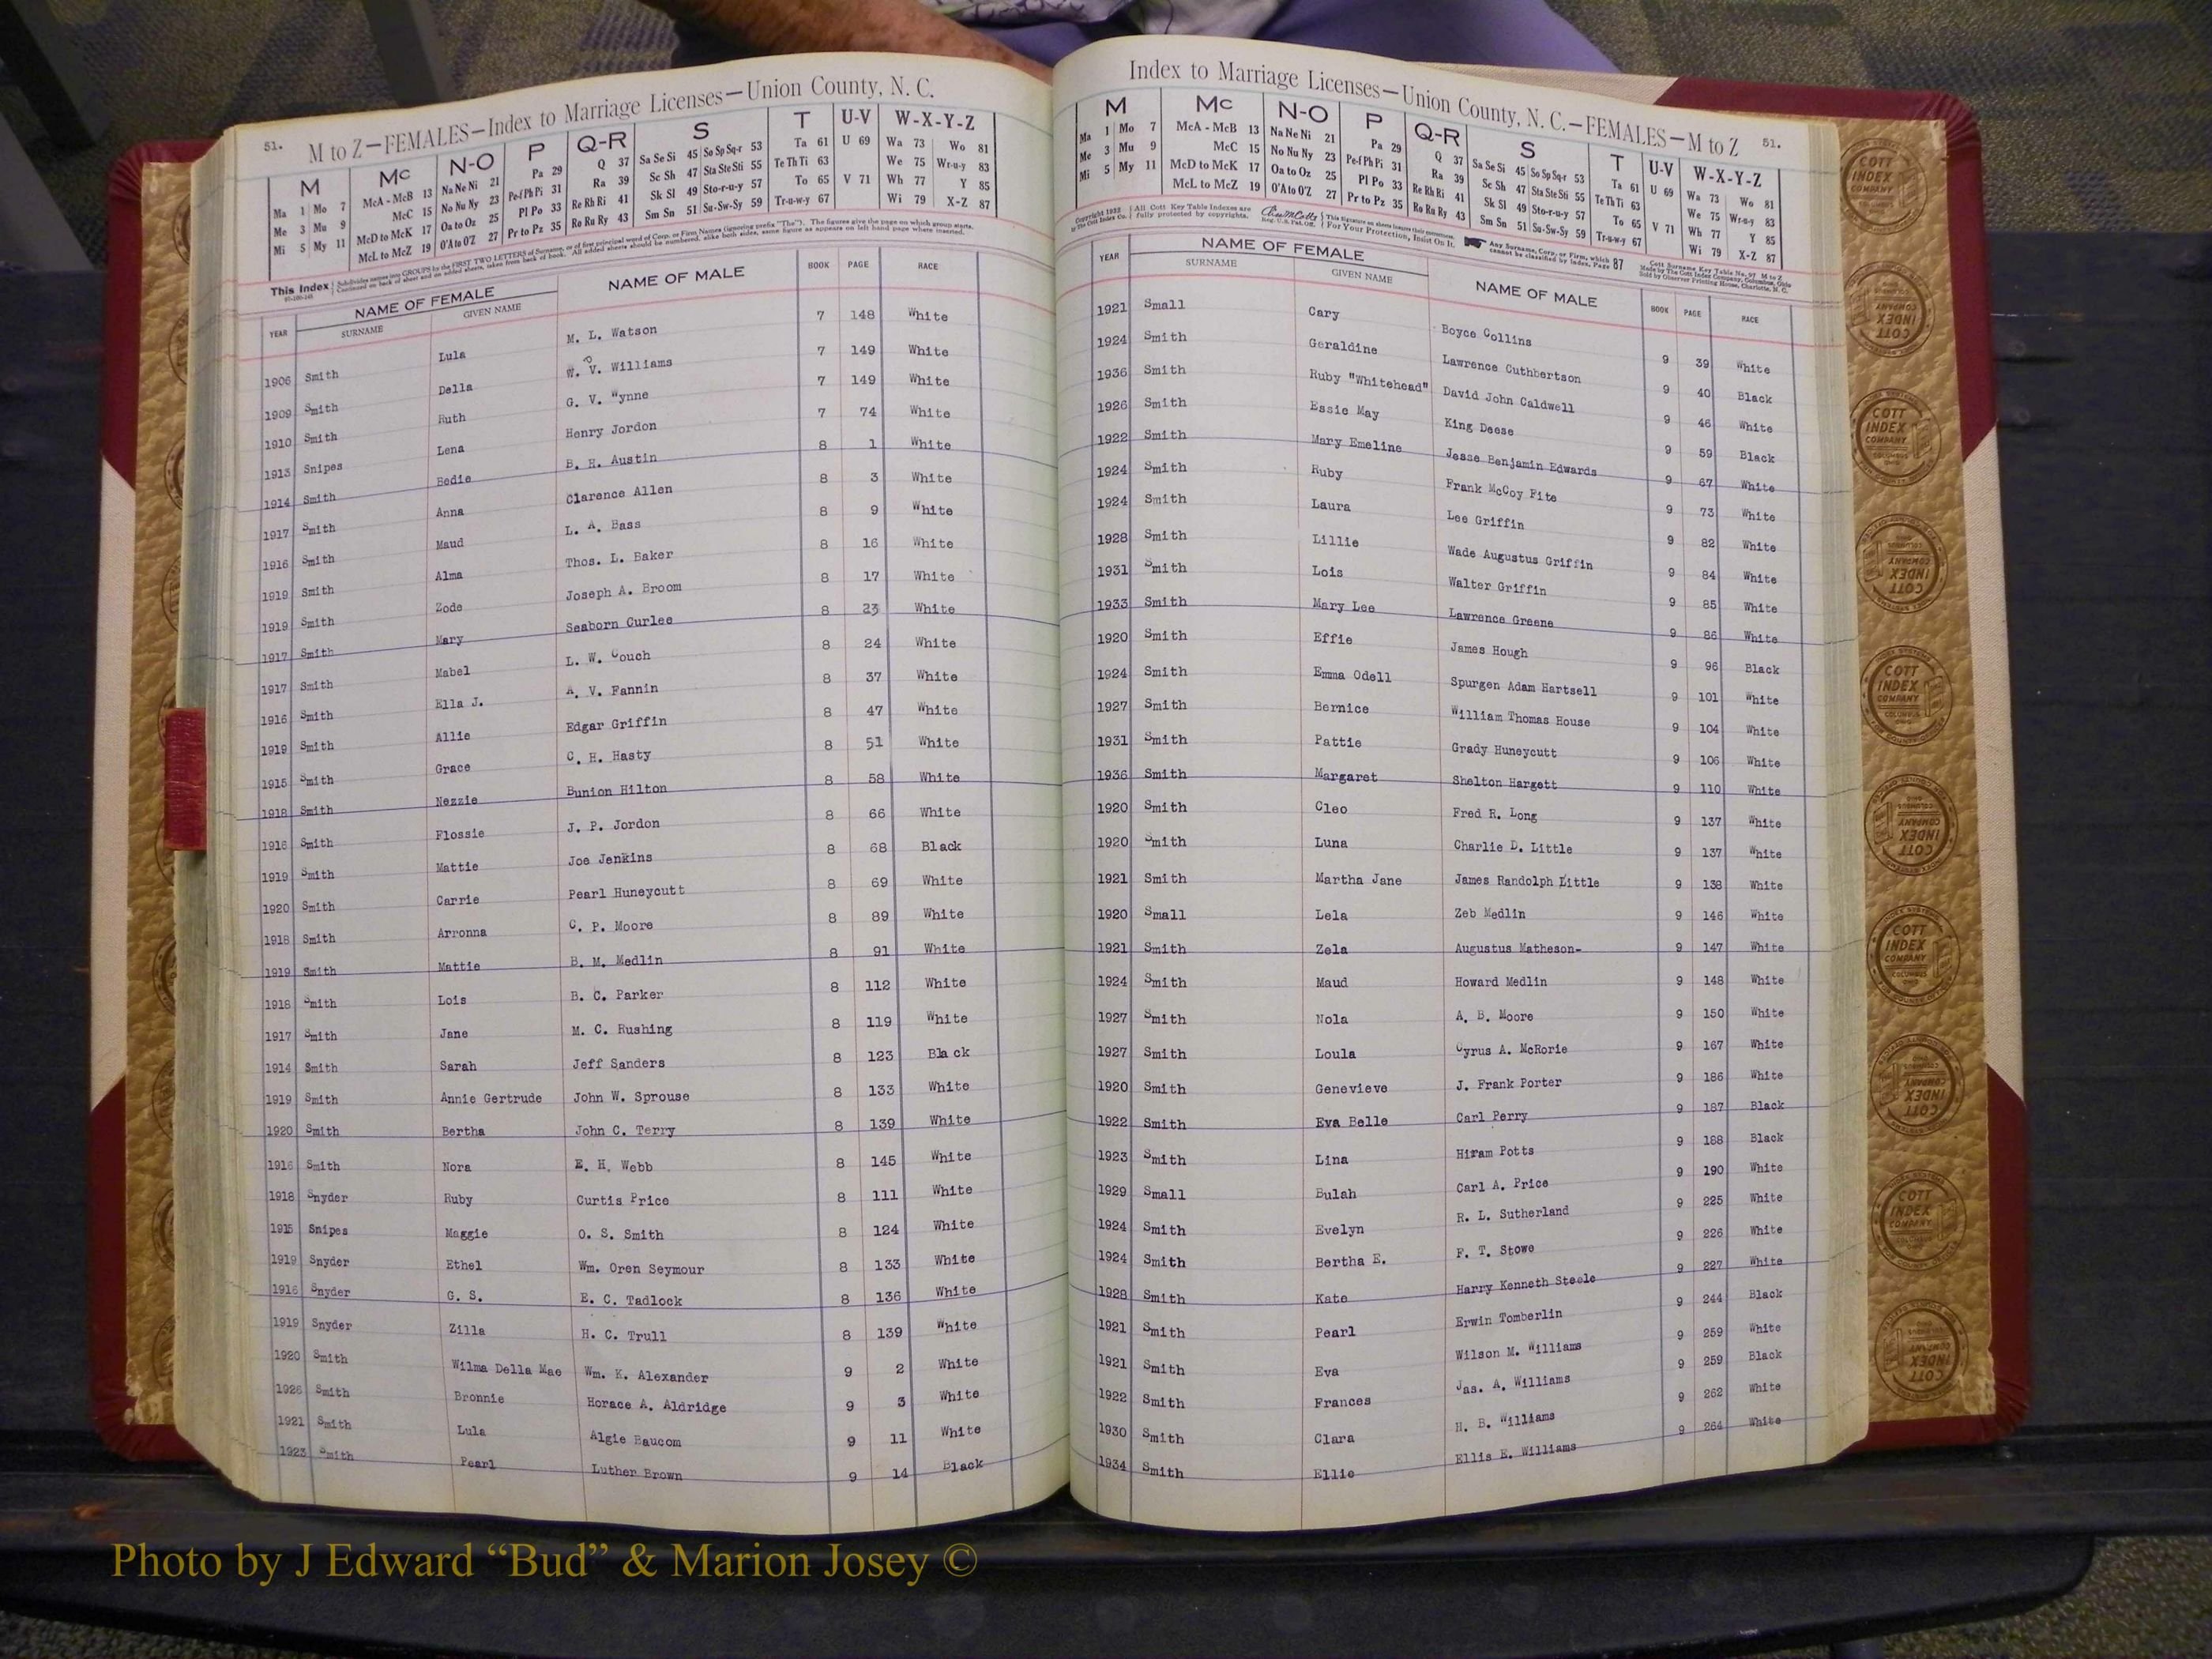 51. M to Z—FEMALES—Index to Marriage Licenses—Union County, N. C.
M Mc N-O P Q-R S T U-V W-X-Y-Z
Ma 1 Mo 7 McA - McB 13 Na Ne Ni 21 Pa 29 Q 37 Sa Se Si 45 So Sp Sq-r 53 Ta 61 U 69 Wa 73 Wo 81
Me 3 Mu 9 McC 15 No Nu Ny 23 Pe-f Ph Pi 31 Ra 39 Sc Sh 47 Sta Ste Sti 55 Te Th Ti 63 We 75 Wr-u-y 83
Mi 5 My 11 McD to McK 17 Oa to Oz 25 Pl Po 33 Re Rh Ri 41 Sk Sl 49 Sto-r-u-y 57 To 65 V 71 Wh 77 Y 85
McL to McZ 19 O'A to O'Z 27 Pr to Pz 35 Ro Ru Ry 43 Sm Sn 51 Su-Sw-Sy 59 Tr-u-w-y 67 Wi 79 X-Z 87
This Index Subdivides names into GROUPS by the FIRST TWO LETTERS of Surname, or of first principal word of Corp. or Firm Names (ignoring prefix "The"). The figures give the page on which group starts.
Continued on back of sheet and on added sheets, taken from back of book. All added sheets should be numbered, alike both sides, same figure as appears on left hand page where inserted.
YEAR NAME OF FEMALE NAME OF MALE BOOK PAGE RACE
SURNAME GIVEN NAME
1906 Smith Lula M. L. Watson 7 148 White
1909 Smith Della W. P. V. Williams 7 149 White
1910 Smith Ruth G. V. Wynne 7 149 White
1913 Snipes Lena Henry Jordon 7 74 White
1914 Smith Bedie B. H. Austin 8 1 White
1917 Smith Anna Clarence Allen 8 3 White
1916 Smith Maud L. A. Bass 8 9 White
1919 Smith Alma Thos. L. Baker 8 16 White
1919 Smith Zode Joseph A. Broom 8 17 White
1917 Smith Mary Seaborn Curlee 8 23 White
1917 Smith Mabel L. W. Couch 8 24 White
1916 Smith Ella J. A. V. Fannin 8 37 White
1919 Smith Allie Edgar Griffin 8 47 White
1915 Smith Grace C. H. Hasty 8 51 White
1918 Smith Nezzie Bunion Hilton 8 58 White
1916 Smith Flossie J. P. Jordon 8 66 White
1919 Smith Mattie Joe Jenkins 8 68 Black
1920 Smith Carrie Pearl Huneycutt 8 69 White
1918 Smith Arronna C. P. Moore 8 89 White
1919 Smith Mattie B. M. Medlin 8 91 White
1918 Smith Lois B. C. Parker 8 112 White
1917 Smith Jane M. C. Rushing 8 119 White
1914 Smith Sarah Jeff Sanders 8 123 Black
1919 Smith Annie Gertrude John W. Sprouse 8 133 White
1920 Smith Bertha John C. Terry 8 139 White
1916 Smith Nora E. H. Webb 8 145 White
1918 Snyder Ruby Curtis Price 8 111 White
1915 Snipes Maggie O. S. Smith 8 124 White
1919 Snyder Ethel Wm. Oren Seymour 8 133 White
1916 Snyder G. S. E. C. Tadlock 8 136 White
1919 Snyder Zilla H. C. Trull 8 139 White
1920 Smith Wilma Della Mae Wm. K. Alexander 9 2 White
1926 Smith Bronnie Horace A. Aldridge 9 3 White
1921 Smith Lula Algie Baucom 9 11 White
1923 Smith Pearl Luther Brown 9 14 Black
Index to Marriage Licenses—Union County, N. C.—FEMALES—M to Z 51.
M Mc N-O P Q-R S T U-V W-X-Y-Z
Ma 1 Mo 7 McA - McB 13 Na Ne Ni 21 Pa 29 Q 37 Sa Se Si 45 So Sp Sq-r 53 Ta 61 U 69 Wa 73 Wo 81
Me 3 Mu 9 McC 15 No Nu Ny 23 Pe-f Ph Pi 31 Ra 39 Sc Sh 47 Sta Ste Sti 55 Te Th Ti 63 We 75 Wr-u-y 83
Mi 5 My 11 McD to McK 17 Oa to Oz 25 Pl Po 33 Re Rh Ri 41 Sk Sl 49 Sto-r-u-y 57 To 65 V 71 Wh 77 Y 85
McL to McZ 19 O'A to O'Z 27 Pr to Pz 35 Ro Ru Ry 43 Sm Sn 51 Su-Sw-Sy 59 Tr-u-w-y 67 Wi 79 X-Z 87
Copyright 1932 All Cott Key Table Indexes are For Your Protection, Insist On It. Any Surname, Corp. or Firm, which
by The Cott Index Co. fully protected by copyrights. cannot be classified by index, Page 87
Made by The Cott Index Company, Columbus, Ohio
Sold by Observer Printing House, Charlotte, N. C.
YEAR NAME OF FEMALE NAME OF MALE BOOK PAGE RACE
SURNAME GIVEN NAME
1921 Small Cary Boyce Collins 9 39 White
1924 Smith Geraldine Lawrence Cuthbertson 9 40 Black
1936 Smith Ruby "Whitehead" David John Caldwell 9 46 White
1926 Smith Essie May King Deese 9 59 Black
1922 Smith Mary Emeline Jesse Benjamin Edwards 9 67 White
1924 Smith Ruby Frank McCoy Fite 9 73 White
1924 Smith Laura Lee Griffin 9 82 White
1928 Smith Lillie Wade Augustus Griffin 9 84 White
1931 Smith Lois Walter Griffin 9 85 White
1933 Smith Mary Lee Lawrence Greene 9 86 White
1920 Smith Effie James Hough 9 96 Black
1924 Smith Emma Odell Spurgen Adam Hartsell 9 101 White
1927 Smith Bernice William Thomas House 9 104 White
1931 Smith Pattie Grady Huneycutt 9 106 White
1936 Smith Margaret Shelton Hargett 9 110 White
1920 Smith Cleo Fred R. Long 9 137 White
1920 Smith Luna Charlie D. Little 9 137 White
1921 Smith Martha Jane James Randolph Little 9 138 White
1920 Small Lela Zeb Medlin 9 146 White
1921 Smith Zela Augustus Matheson- 9 147 White
1924 Smith Maud Howard Medlin 9 148 White
1927 Smith Nola A. B. Moore 9 150 White
1927 Smith Loula Cyrus A. McRorie 9 167 White
1920 Smith Genevieve J. Frank Porter 9 186 White
1922 Smith Eva Belle Carl Perry 9 187 Black
1923 Smith Lina Hiram Potts 9 188 Black
1929 Small Bulah Carl A. Price 9 190 White
1924 Smith Evelyn R. L. Sutherland 9 225 White
1924 Smith Bertha E. F. T. Stowe 9 226 White
1928 Smith Kate Harry Kenneth Steele 9 227 White
1921 Smith Pearl Erwin Tomberlin 9 244 Black
1921 Smith Eva Wilson M. Williams 9 259 White
1922 Smith Frances Jas. A. Williams 9 259 Black
1930 Smith Clara H. B. Williams 9 262 White
1934 Smith Ellie Ellis E. Williams 9 264 White
COTT INDEX COMPANY COLUMBUS OHIO
Photo by J Edward “Bud” & Marion Josey ©